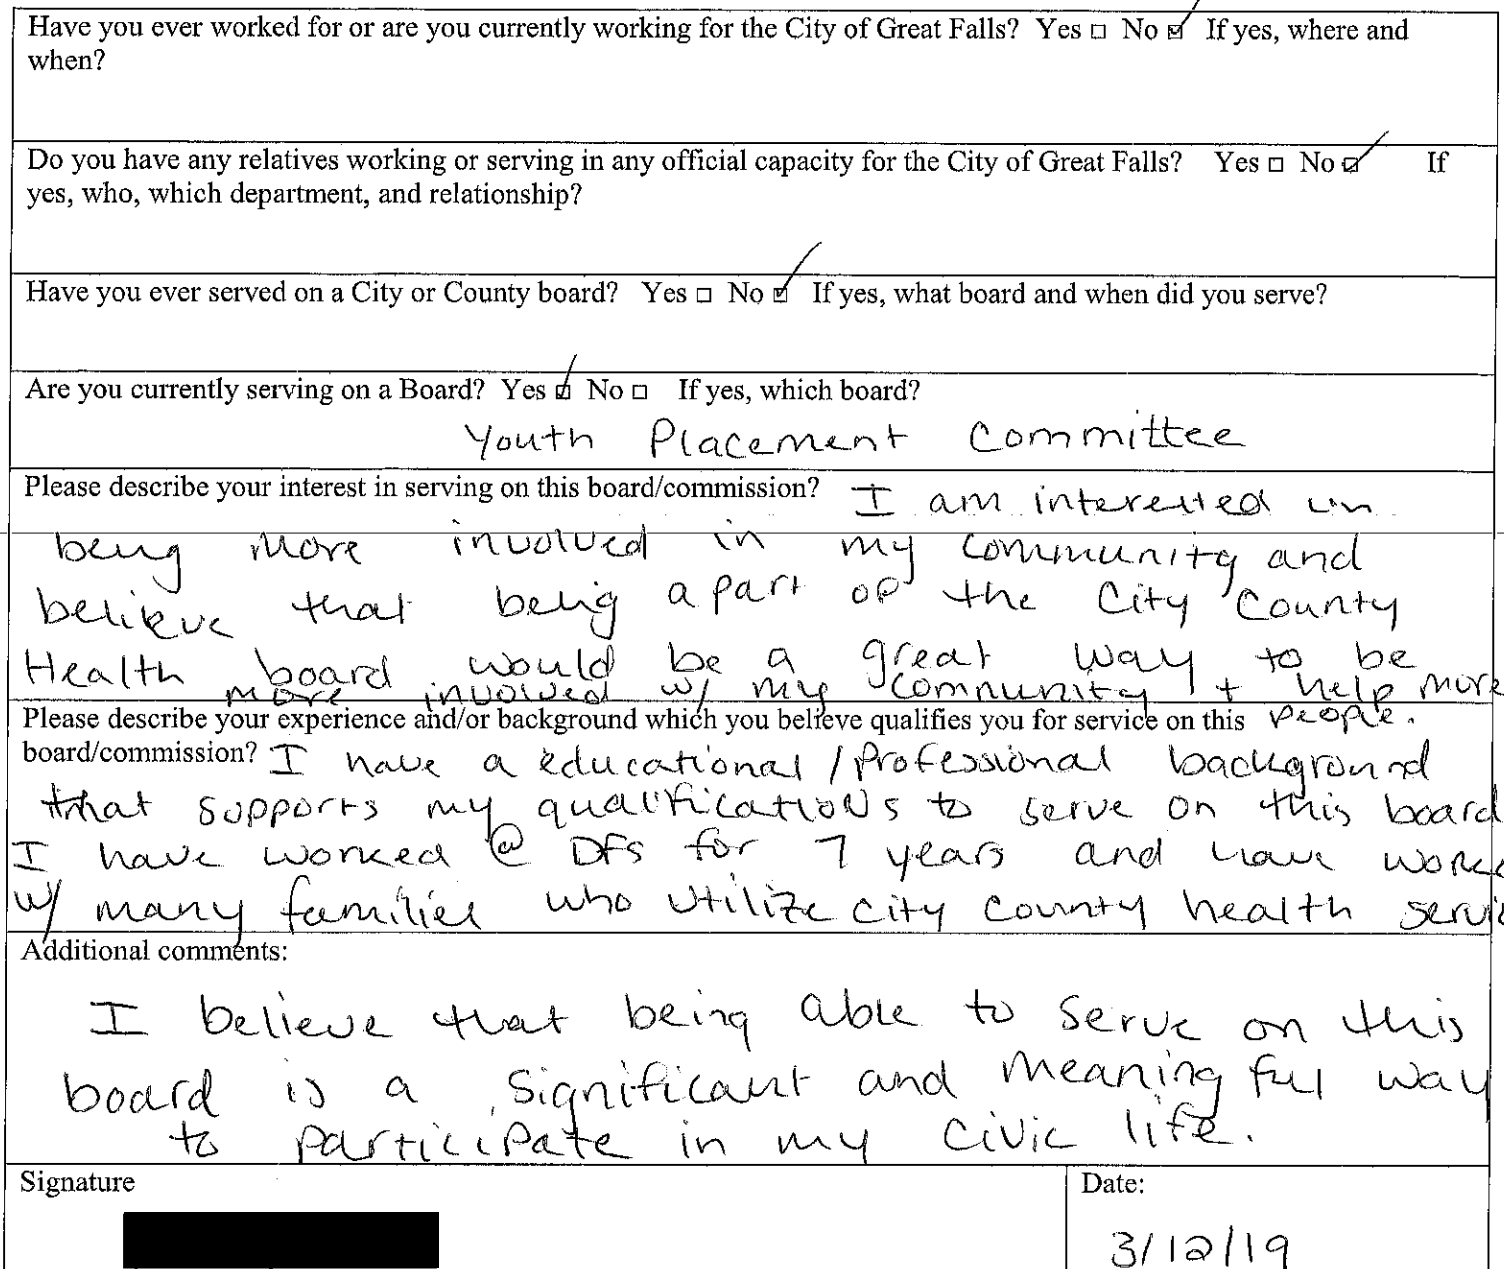 Have you ever worked for or are you currently working for the City of Great Falls? Yes □ No ☑ If yes, where and
when?
Do you have any relatives working or serving in any official capacity for the City of Great Falls? Yes □ No ☑ If
yes, who, which department, and relationship?
Have you ever served on a City or County board? Yes □ No ☑ If yes, what board and when did you serve?
Are you currently serving on a Board? Yes ☑ No □ If yes, which board?
Youth Placement Committee
Please describe your interest in serving on this board/commission? I am interested in
being more involved in my community and
believe that being a part of the City County
Health board would be a great way to be
more involved w/ my community + help more
Please describe your experience and/or background which you believe qualifies you for service on this people.
board/commission? I have a educational/professional background
that supports my qualifications to serve on this board
I have worked @ DFS for 7 years and have worke
w/ many families who utilize city county health servic
Additional comments:
I believe that being able to serve on this
board is a significant and meaningful way
to participate in my civic life.
Signature Date:
3/12/19